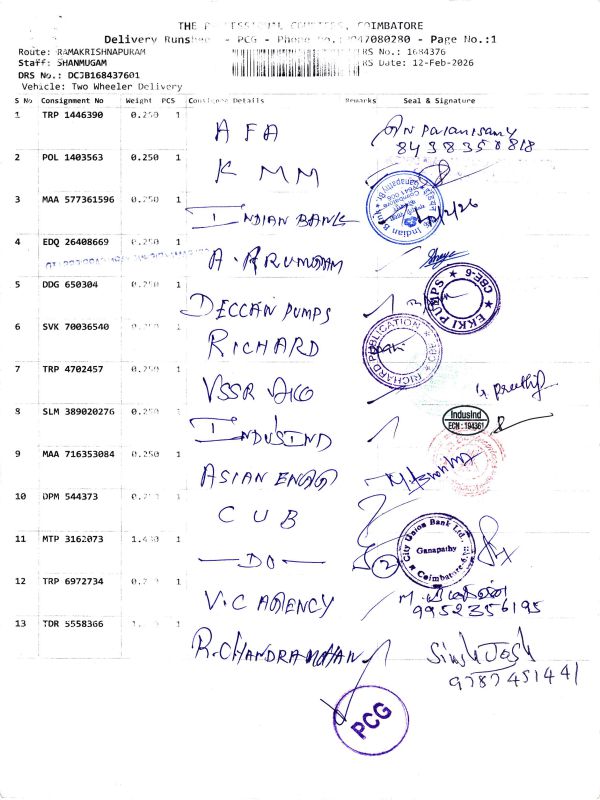 THE P ESSIONAL COURIERS, COIMBATORE
Delivery Runsheet - PCG - Phone No.: 9047080280 - Page No.:1
Route: RAMAKRISHNAPURAM
RS No.: 1684376
Staff: SHANMUGAM
RS Date: 12-Feb-2026
DRS No.: DCJB168437601
Vehicle: Two Wheeler Delivery
S No Consignment No Weight PCS Consignee Details Remarks Seal & Signature
1 TRP 1446390 0.250 1 AFA Palanisamy
2 POL 1403563 0.250 1 KMM
3 MAA 577361596 0.250 1 INDIAN BANK Indian Bank Ganapathy Br.
4 EDQ 26408669 0.250 1 A. ARUMUGAM
5 DDG 650304 0.250 1 DECCAN PUMPS EKKI PUMPS ★ CBE-6 ★
6 SVK 70036540 1 RICHARD RICHARD PUBLICATION
7 TRP 4702457 0.250 1 VSSR
8 SLM 389020276 0.250 1 INDUSIND IndusInd ECN: 194361
9 MAA 716353084 0.250 1 ASIAN ENGG
10 DPM 544373 1 CUB
11 MTP 3162073 1 — DO — 2 City Union Bank Ltd., Ganapathy Coimbatore
12 TRP 6972734 1 V.C AGENCY 9952356195
13 TDR 5558366 1 R. CHANDRAMOHAN
PCG